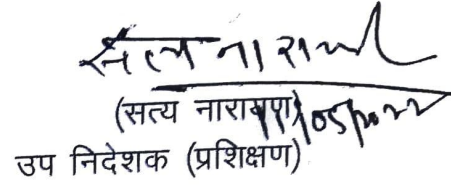 सत्य नारायण
(सत्य नारायण)
11/05/2022
उप निदेशक (प्रशिक्षण)